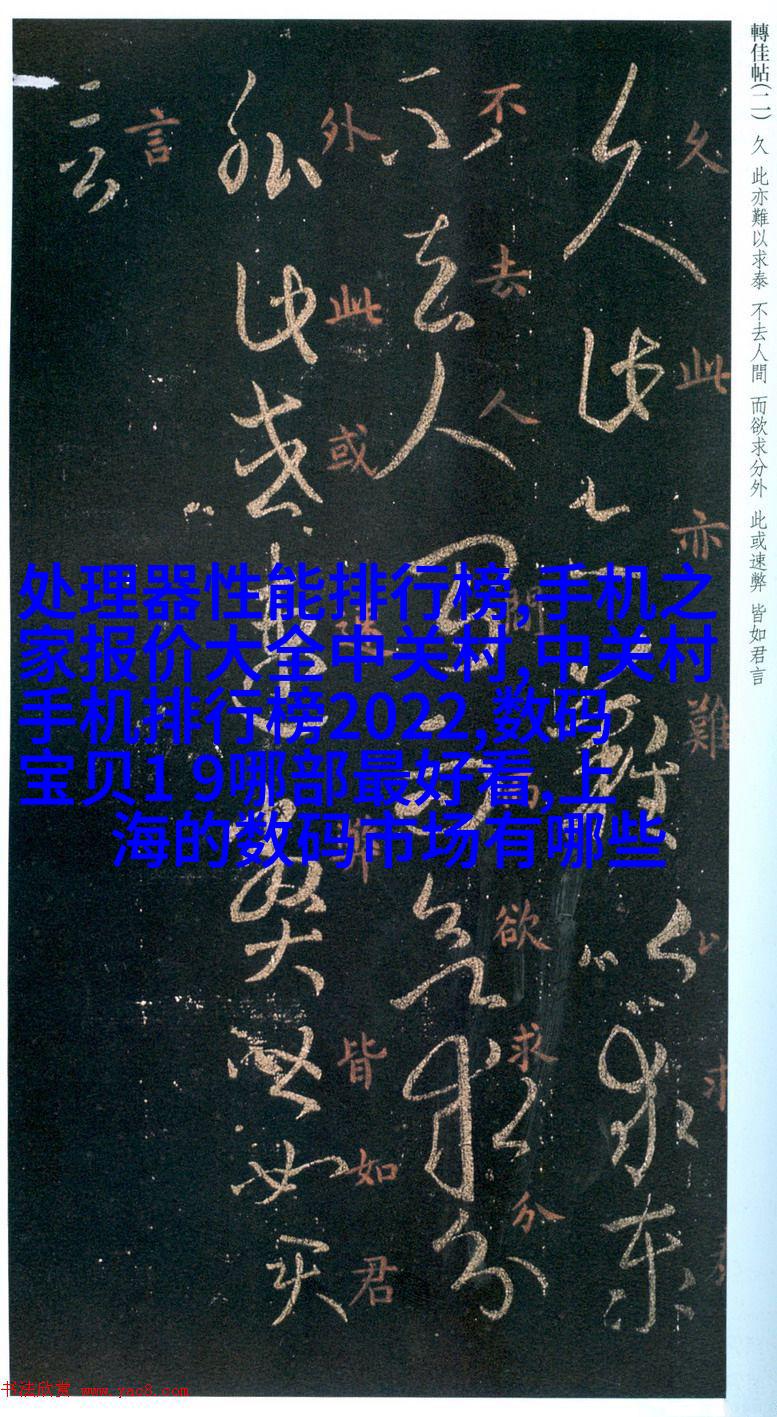 轉佳帖(二) 久 此亦難以求泰 不去人間 而欲求分外 此或速弊 皆如君言
久此亦難以求
不去人間而欲求分
外此或速弊皆如君
言
处理器性能排行榜,手机之
家报价大全中关村,中关村
手机排行榜2022,数码
宝贝1 9哪部最好看,上
海的数码市场有哪些
书法欣赏 www.yac8.com